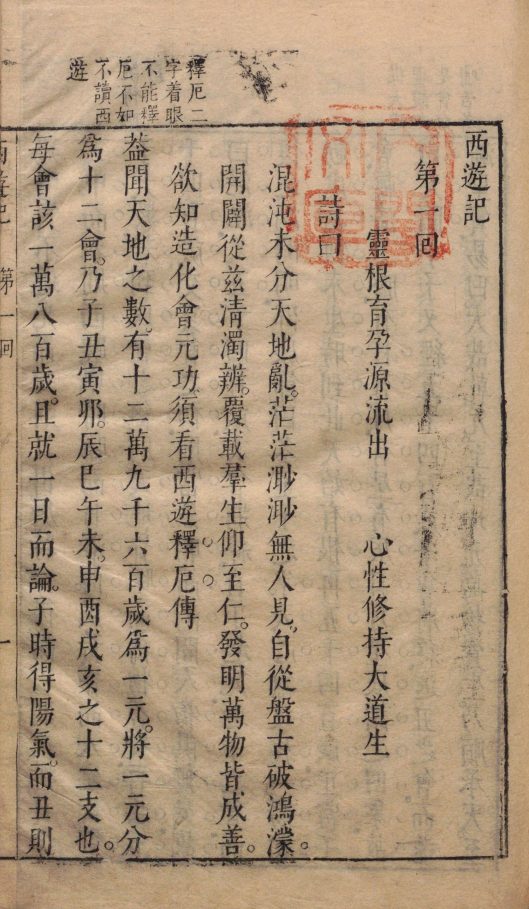 釋厄二
字着眼
不能釋
厄不如
不讀西
遊
西遊記
第一囘
靈根育孕源流出 心性修持大道生
詩曰
混沌未分天地亂。茫茫渺渺無人見。自從盤古破鴻濛。
開闢從兹清濁辨。覆載羣生仰至仁。發明萬物皆成善。
欲知造化會元功。須看西遊釋厄傳
葢聞天地之數。有十二萬九千六百歲爲一元。將一元分
爲十二會。乃子丑寅卯。辰巳午未。申酉戌亥之十二支也。
每會該一萬八百歲。且就一日而論。子時得陽氣。而丑則
西遊記 第一囘 一